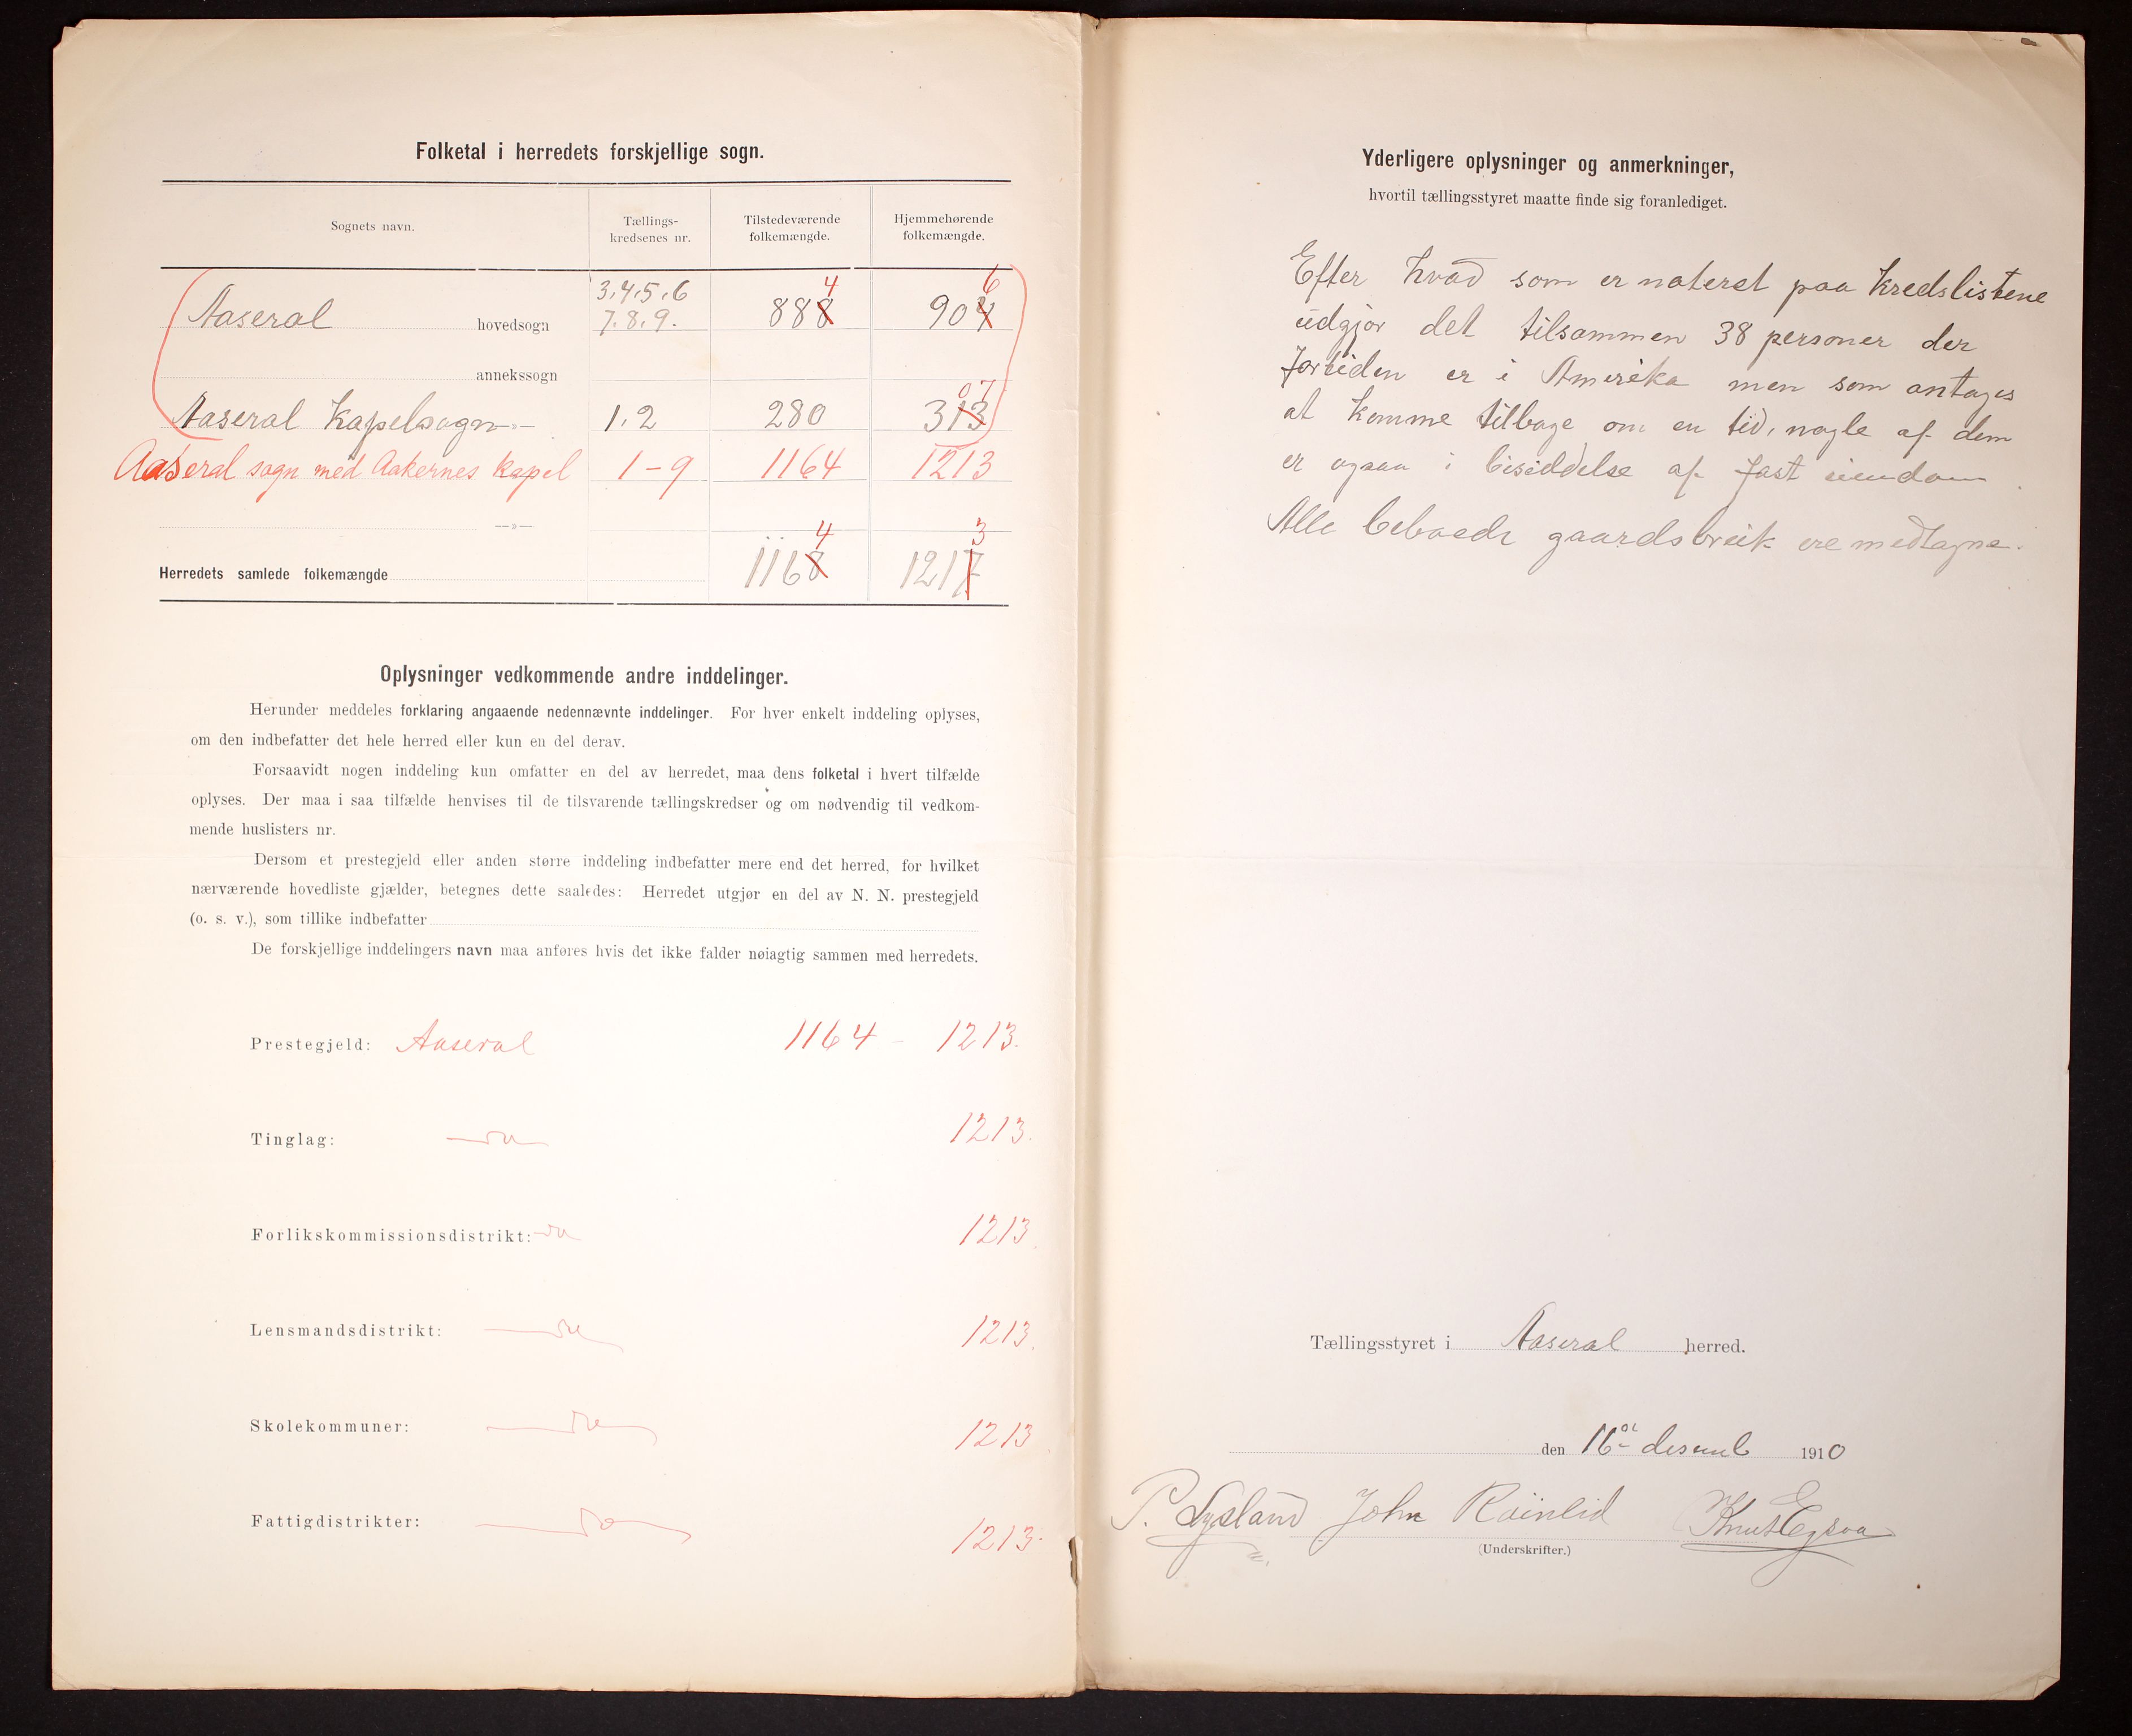 Folketal i herredets forskjellige sogn.
Sognets navn. Tællings-kredsenes nr. Tilstedeværende folkemængde. Hjemmehørende folkemængde.
3.4.5.6 4 6
Aaseral hovedsogn 7.8.9. 888 904
annekssogn
07
Aaseral Kapelsogn -»- 1.2 280 313
Aaseral sogn med Aakernes kapel 1-9 1164 1213
—»—
4 3
Herredets samlede folkemængde 1168 1217
Oplysninger vedkommende andre inddelinger.
Herunder meddeles forklaring angaaende nedennævnte inddelinger. For hver enkelt inddeling oplyses,
om den indbefatter det hele herred eller kun en del derav.
Forsaavidt nogen inddeling kun omfatter en del av herredet, maa dens folketal i hvert tilfælde
oplyses. Der maa i saa tilfælde henvises til de tilsvarende tællingskredser og om nødvendig til vedkom-
mende huslisters nr.
Dersom et prestegjeld eller anden større inddeling indbefatter mere end det herred, for hvilket
nærværende hovedliste gjælder, betegnes dette saaledes: Herredet utgjør en del av N. N. prestegjeld
(o. s. v.), som tillike indbefatter
De forskjellige inddelingers navn maa anføres hvis det ikke falder nøiagtig sammen med herredets.
Prestegjeld: Aaseral 1164 - 1213.
Tinglag: — do — 1213.
Forlikskommissionsdistrikt: - do 1213.
Lensmandsdistrikt: — do 1213.
Skolekommuner: — do 1213
Fattigdistrikter: — do 1213.
Yderligere oplysninger og anmerkninger,
hvortil tællingsstyret maatte finde sig foranlediget.
Efter hvad som er noteret paa Kredslistene
udgjør det tilsammen 38 personer der
fortiden er i Amerika men som antages
at komme tilbage om en tid, nogle af dem
er ogsaa i besiddelse af fast eiendom
Alle beboede gaardsbruk ere medtagne.
Tællingsstyret i Aaseral herred.
den 16de desemb 1910
P. Lysland John Røinlid Knut Egsaa
(Underskrifter.)